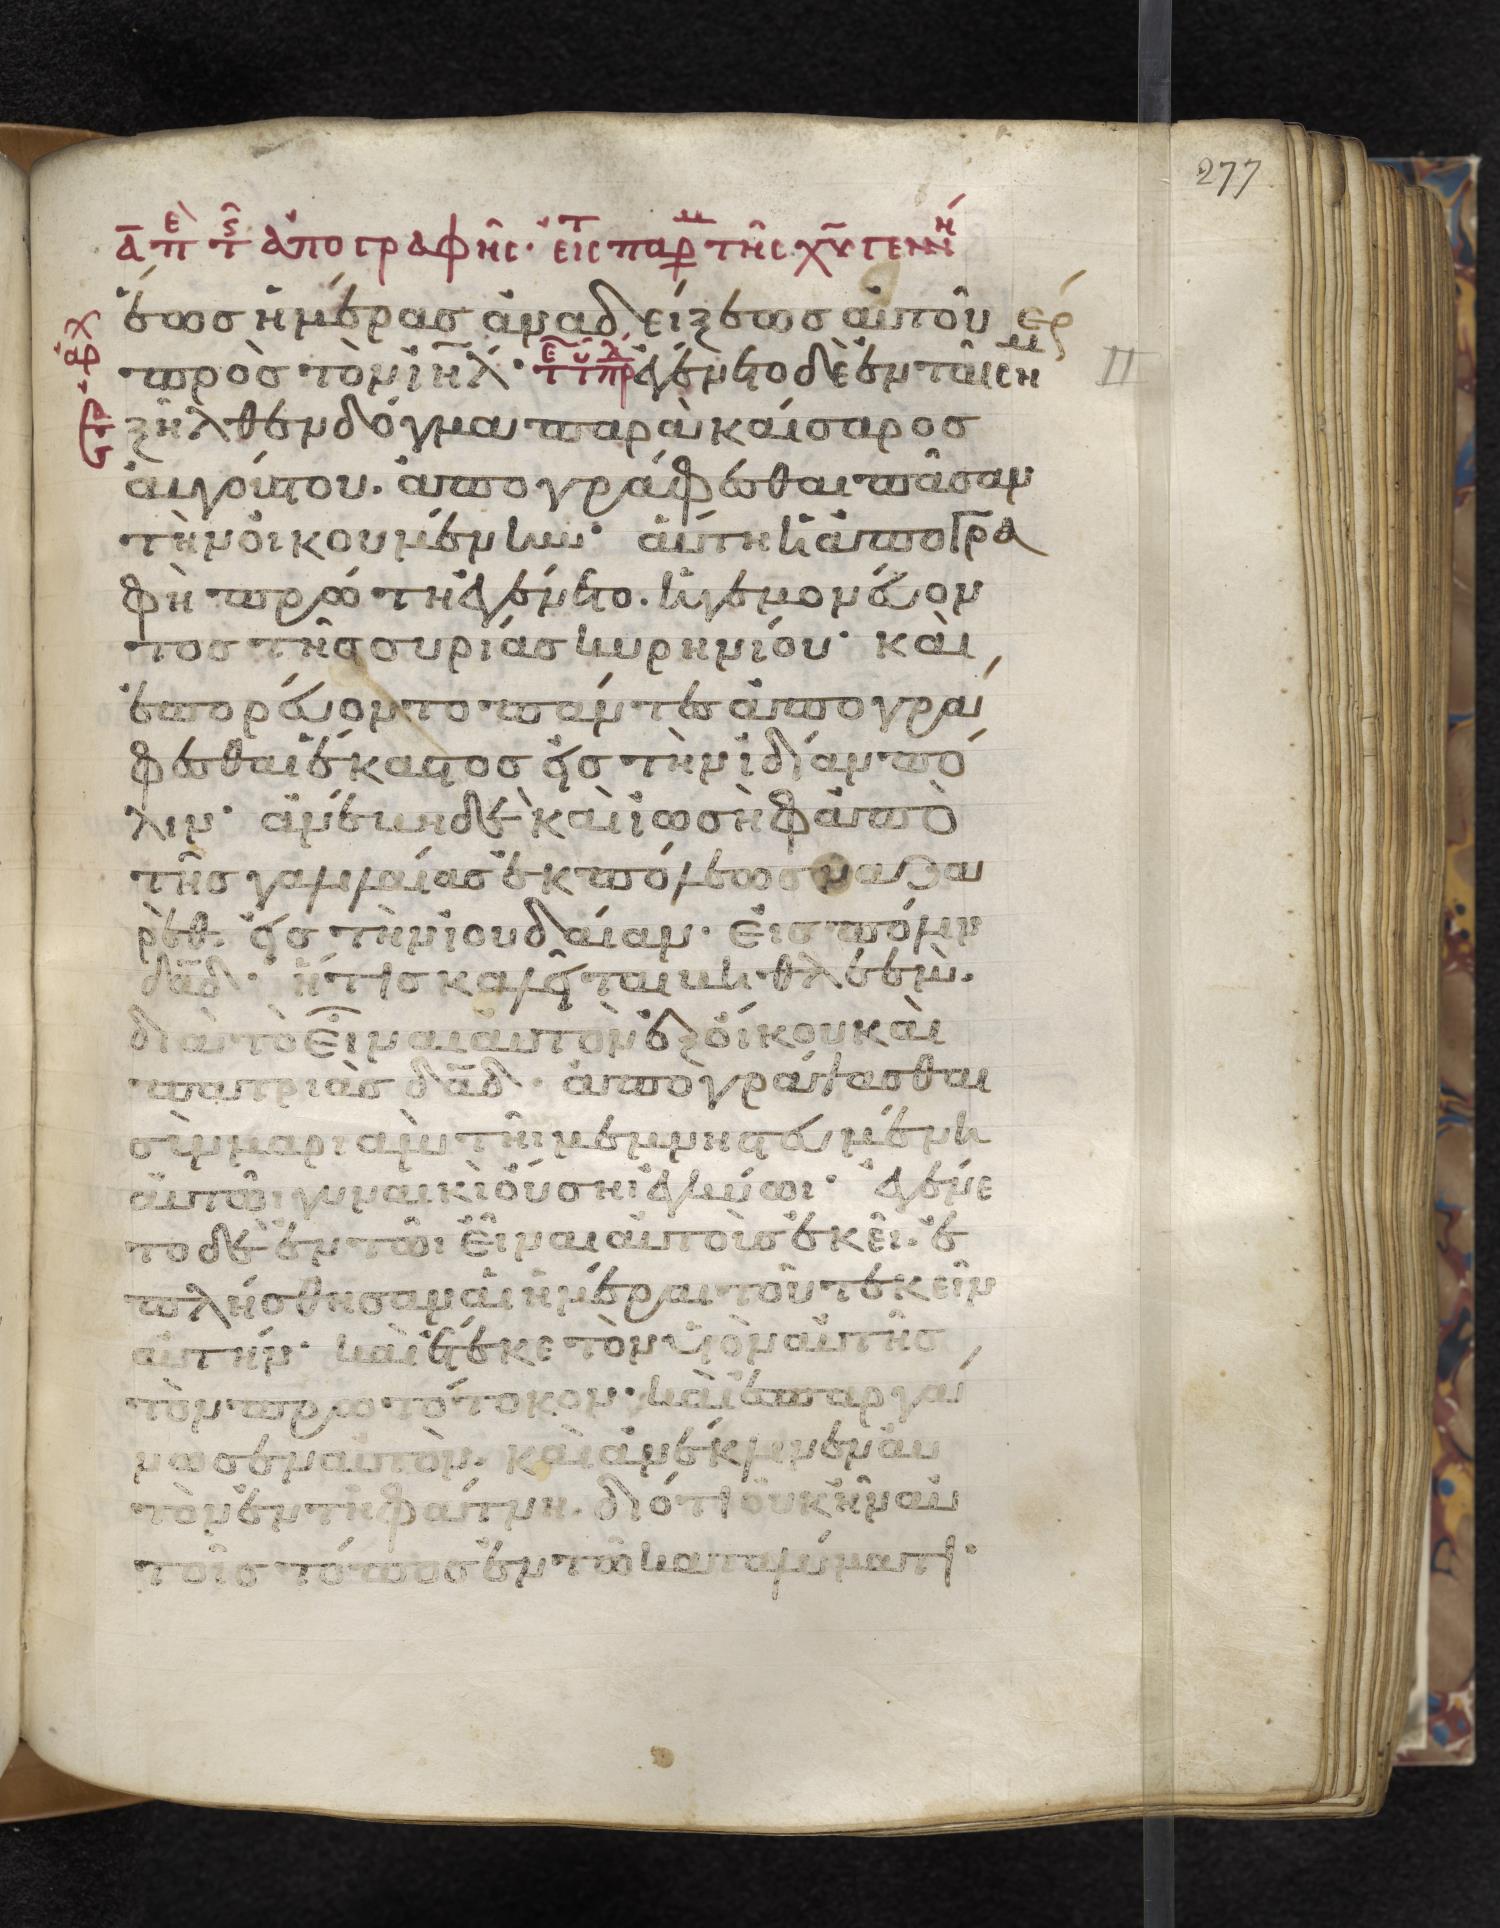 277
ᾱ πε τς ἀπογραφῆς· εἰς τ παρμ τῆς χῡ γεννή
ἕως ἡμέρας ἀναδείξεως αὐτοῦ
πρὸς τὸν ἰη̅λ· ἐγένετο δὲ ἐν ταῖς ἡμ
ἐξῆλθεν δόγμα παρὰ καίσαρος
αὐγούστου. ἀπογράφεσθαι πᾶσαν
τὴν οἰκουμένην· αὕτη ἡ ἀπογρα
φὴ πρώτη ἐγένετο. ἡγεμονεύον
τος τῆς συρίας κυρηνίου· καὶ
ἐπορεύοντο πάντες ἀπογρά
φεσθαι ἕκαστος εἰς τὴν ἰδίαν πό
λιν· ἀνέβη δὲ καὶ ἰωσὴφ ἀπὸ
τῆς γαλιλαίας ἐκ πόλεως ναζα
ρὲθ. εἰς τὴν ἰουδαίαν· εἰς πόλιν
δᾱδ· ἥτις καλεῖται βηθλεέμ.
διὰ τὸ εἶναι αὐτὸν ἐξ οἴκου καὶ
πατριᾶς δᾱδ· ἀπογράψασθαι
σὺν μαριὰμ τῆι μεμνηστευμένη
αὐτῶι γυναικὶ οὔσηι ἐγκύωι· ἐγένε
το δὲ ἐν τῶι εἶναι αὐτοὺς ἐκεῖ. ἐ
πλήσθησαν αἱ ἡμέραι τοῦ τεκεῖν
αὐτήν· καὶ ἔτεκε τὸν υἱὸν αὐτῆς
τὸν πρωτότοκον· καὶ ἐσπαργά
νωσεν αὐτὸν. καὶ ἀνέκλινεν αὐ
τὸν ἐν τῆ φάτνη. διότι οὐκ ἦν αὐ
τοῖς τόπος ἐν τῶ καταλύματι·